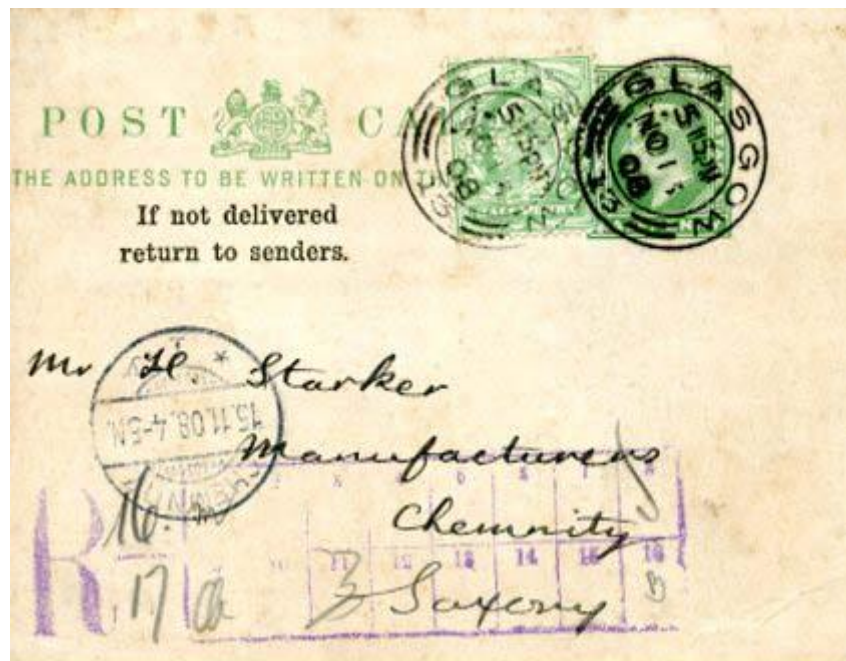 POST CA
THE ADDRESS TO BE WRITTEN ON TH
If not delivered
return to senders.
GLASGOW
5 15 PM
NO 13
08
GLASGOW
5 15 PM
NO 13
08
Mr H. Starker
Manufacturers
Chemnitz
Saxony
15.11.08.4-5N.
R
16.
17
11 12 13 14 15 16
3